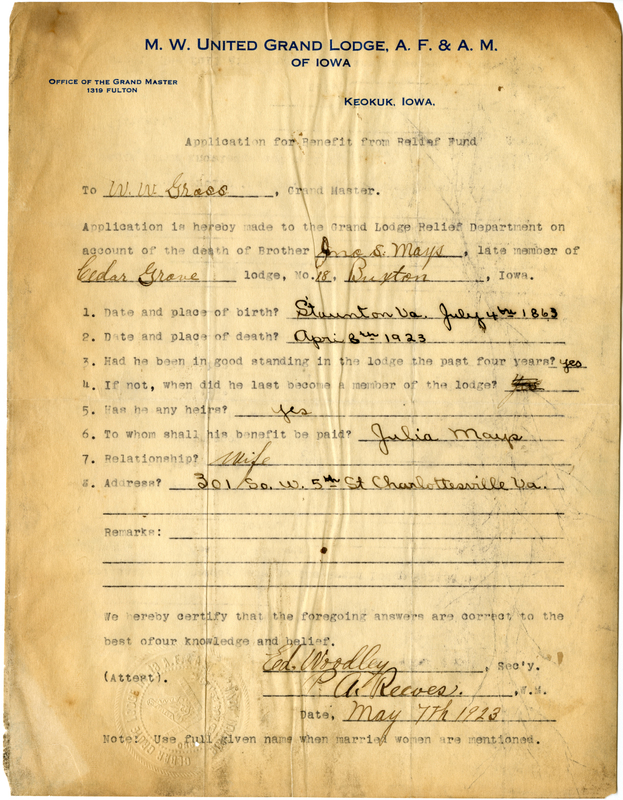 M. W. UNITED GRAND LODGE, A. F. & A. M.
OF IOWA
OFFICE OF THE GRAND MASTER
1319 FULTON
KEOKUK, IOWA.
Application for Benefit from Relief Fund
To W. W. Gross, Grand Master.
Application is hereby made to the Grand Lodge Relief Department on
account of the death of Brother Jno S. Mays, late member of
Cedar Grove lodge, No. 18, Buxton, Iowa.
1. Date and place of birth? Staunton Va. July 4th 1863
2. Date and place of death? Apri 8th 1923
3. Had he been in good standing in the lodge the past four years? yes
4. If not, when did he last become a member of the lodge?
5. Has he any heirs? yes
6. To whom shall his benefit be paid? Julia Mays
7. Relationship? Wife
8. Address? 301 So. W. 5th St Charlottesville Va.
Remarks:
We hereby certify that the foregoing answers are correct to the
best ofour knowledge and belief.
Ed. Woodley, Sec'y.
(Attest). P. A. Reeves., W.M.
Date, May 7th 1923
Note: Use full given name when married women are mentioned.